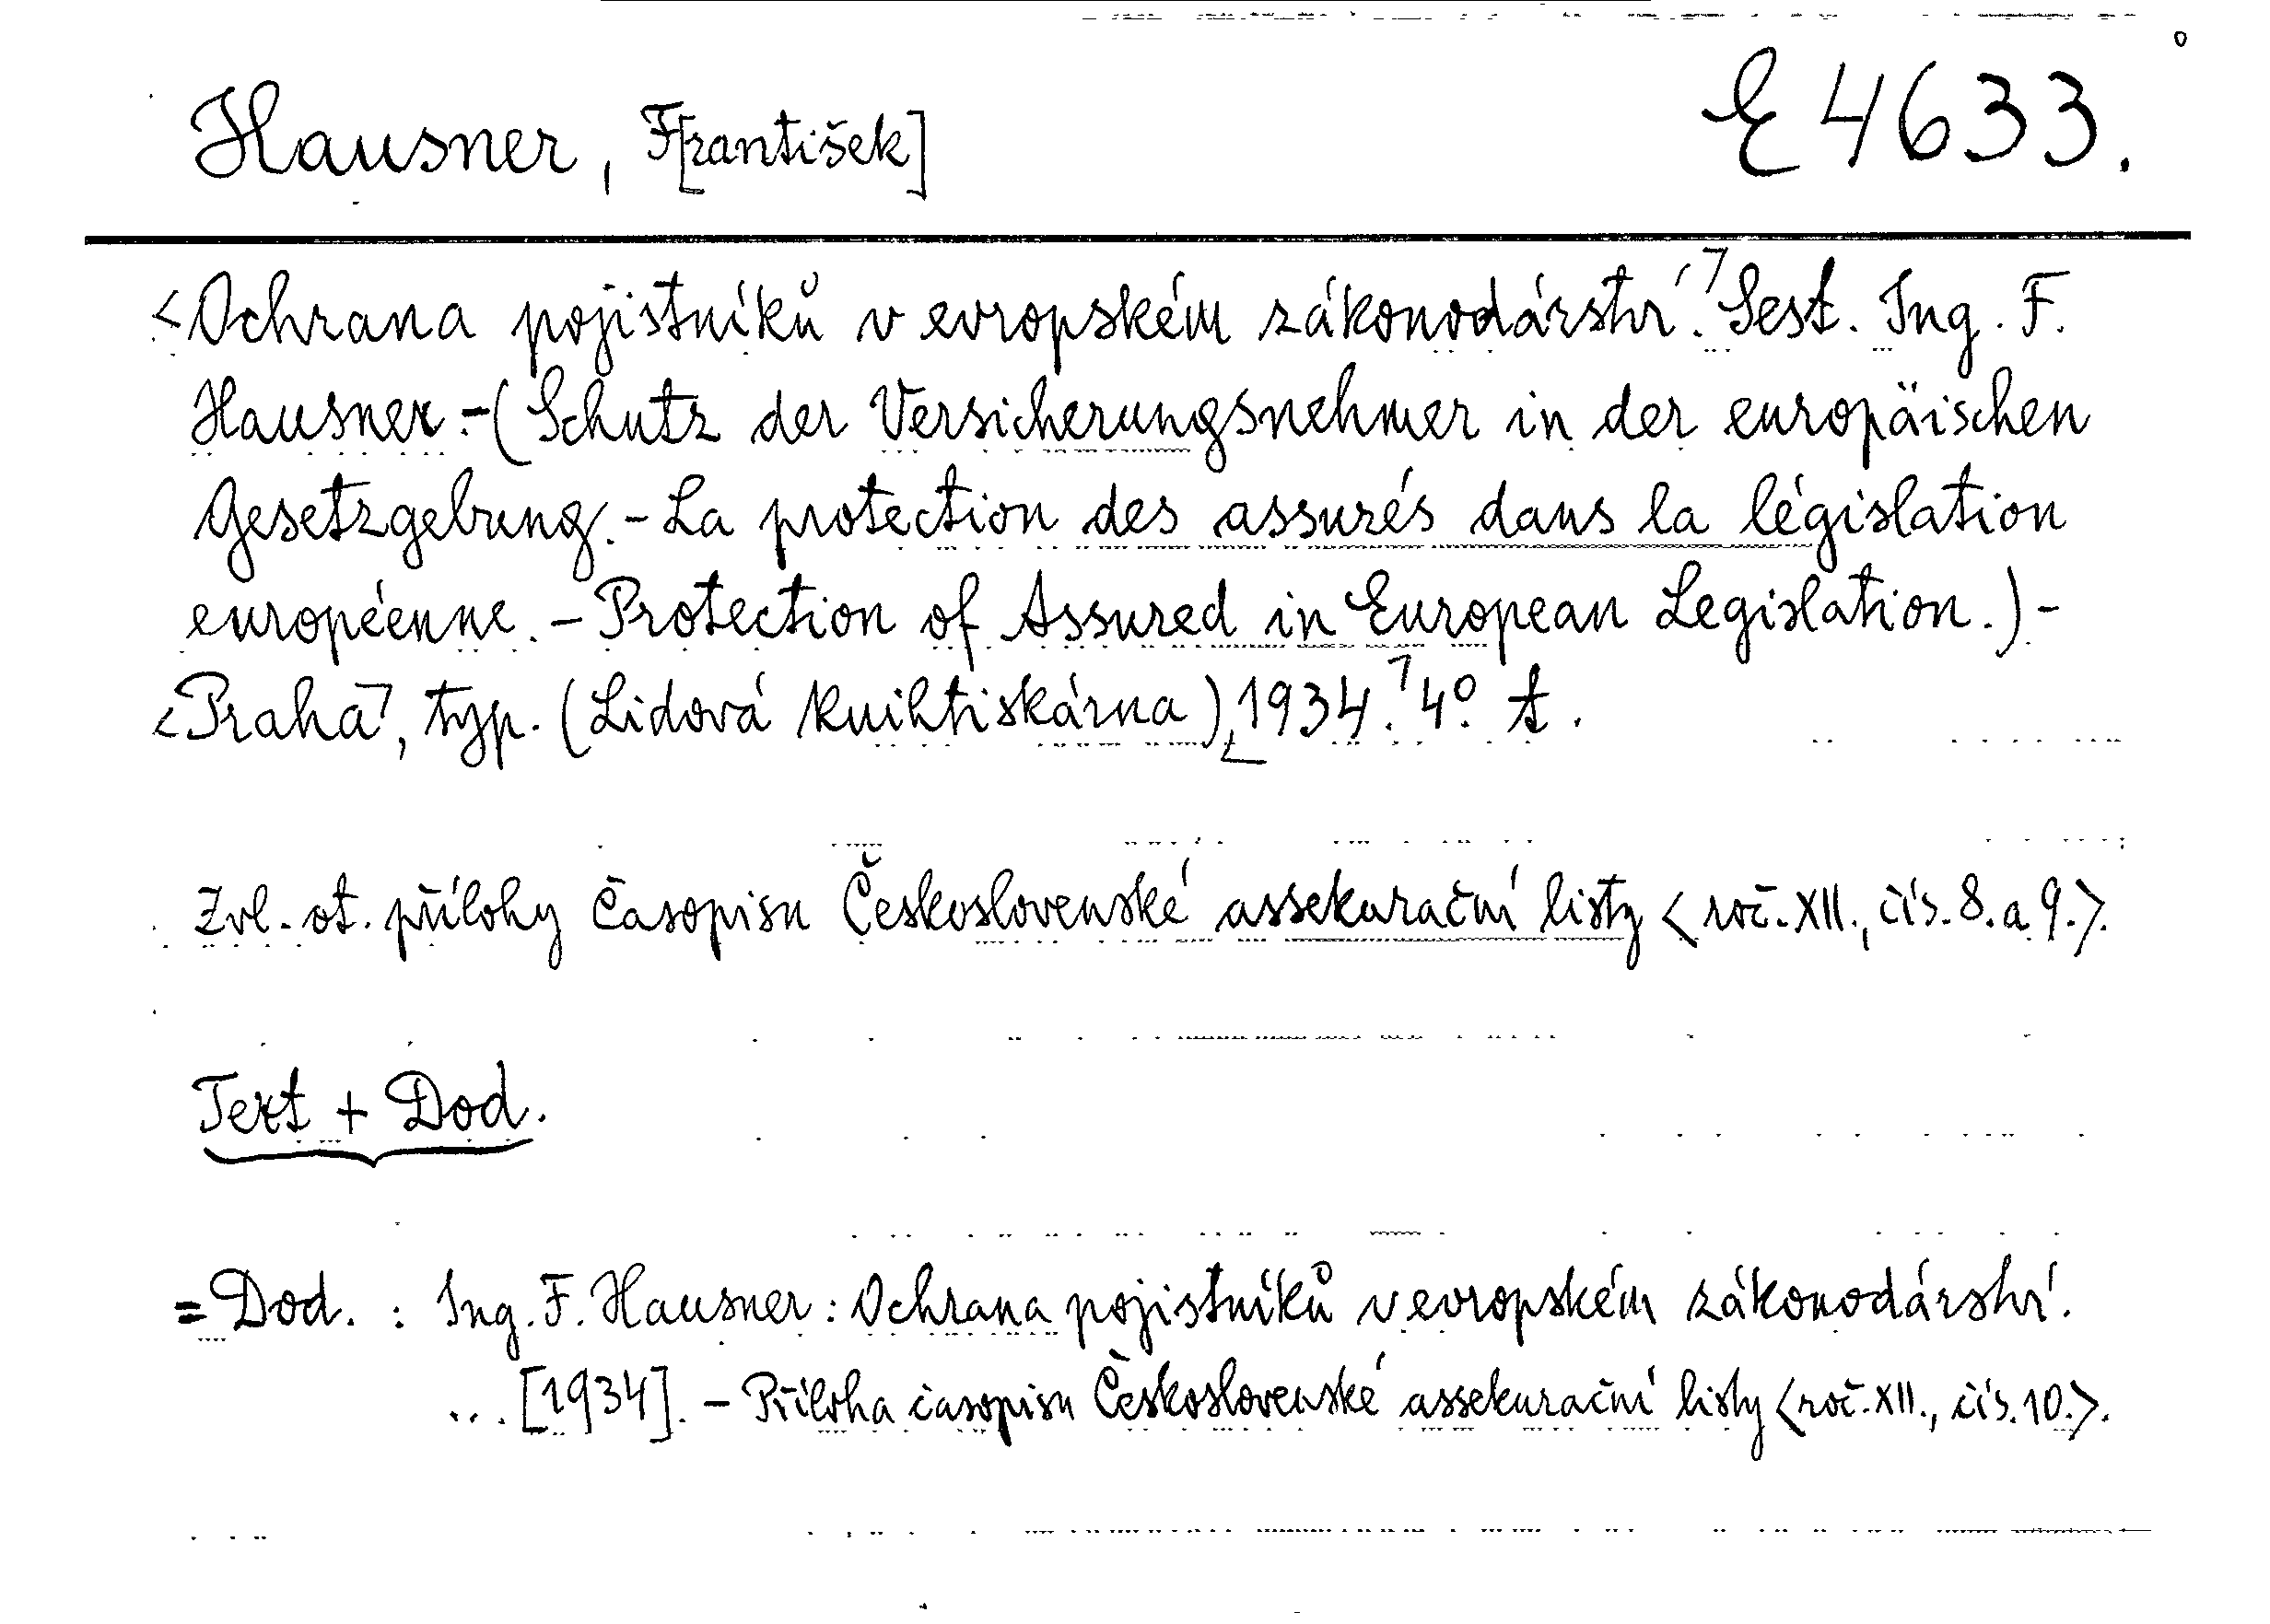 Hausner, F[rantišek]
E 4633.
<Ochrana pojistníků v evropském zákonodárství.⌝ Sest. Ing. F.
Hausner.-(Schutz der Versicherungsnehmer in der europäischen
Gesetzgebung.-La protection des assurés dans la législation
européenne.-Protection of Assured in European Legislation.)-
<Praha⌝, typ. (Lidová knihtiskárna),⌞1934.⌝ 4°. t.
Zvl. ot. přílohy časopisu Československé assekurační listy <roč. XII., čís. 8. a 9.>.
Text + Dod.
= Dod. : Ing. F. Hausner: Ochrana pojistníků v evropském zákonodárství.
... [1934]. - Příloha časopisu Československé assekurační listy <roč. XII., čís. 10.>.